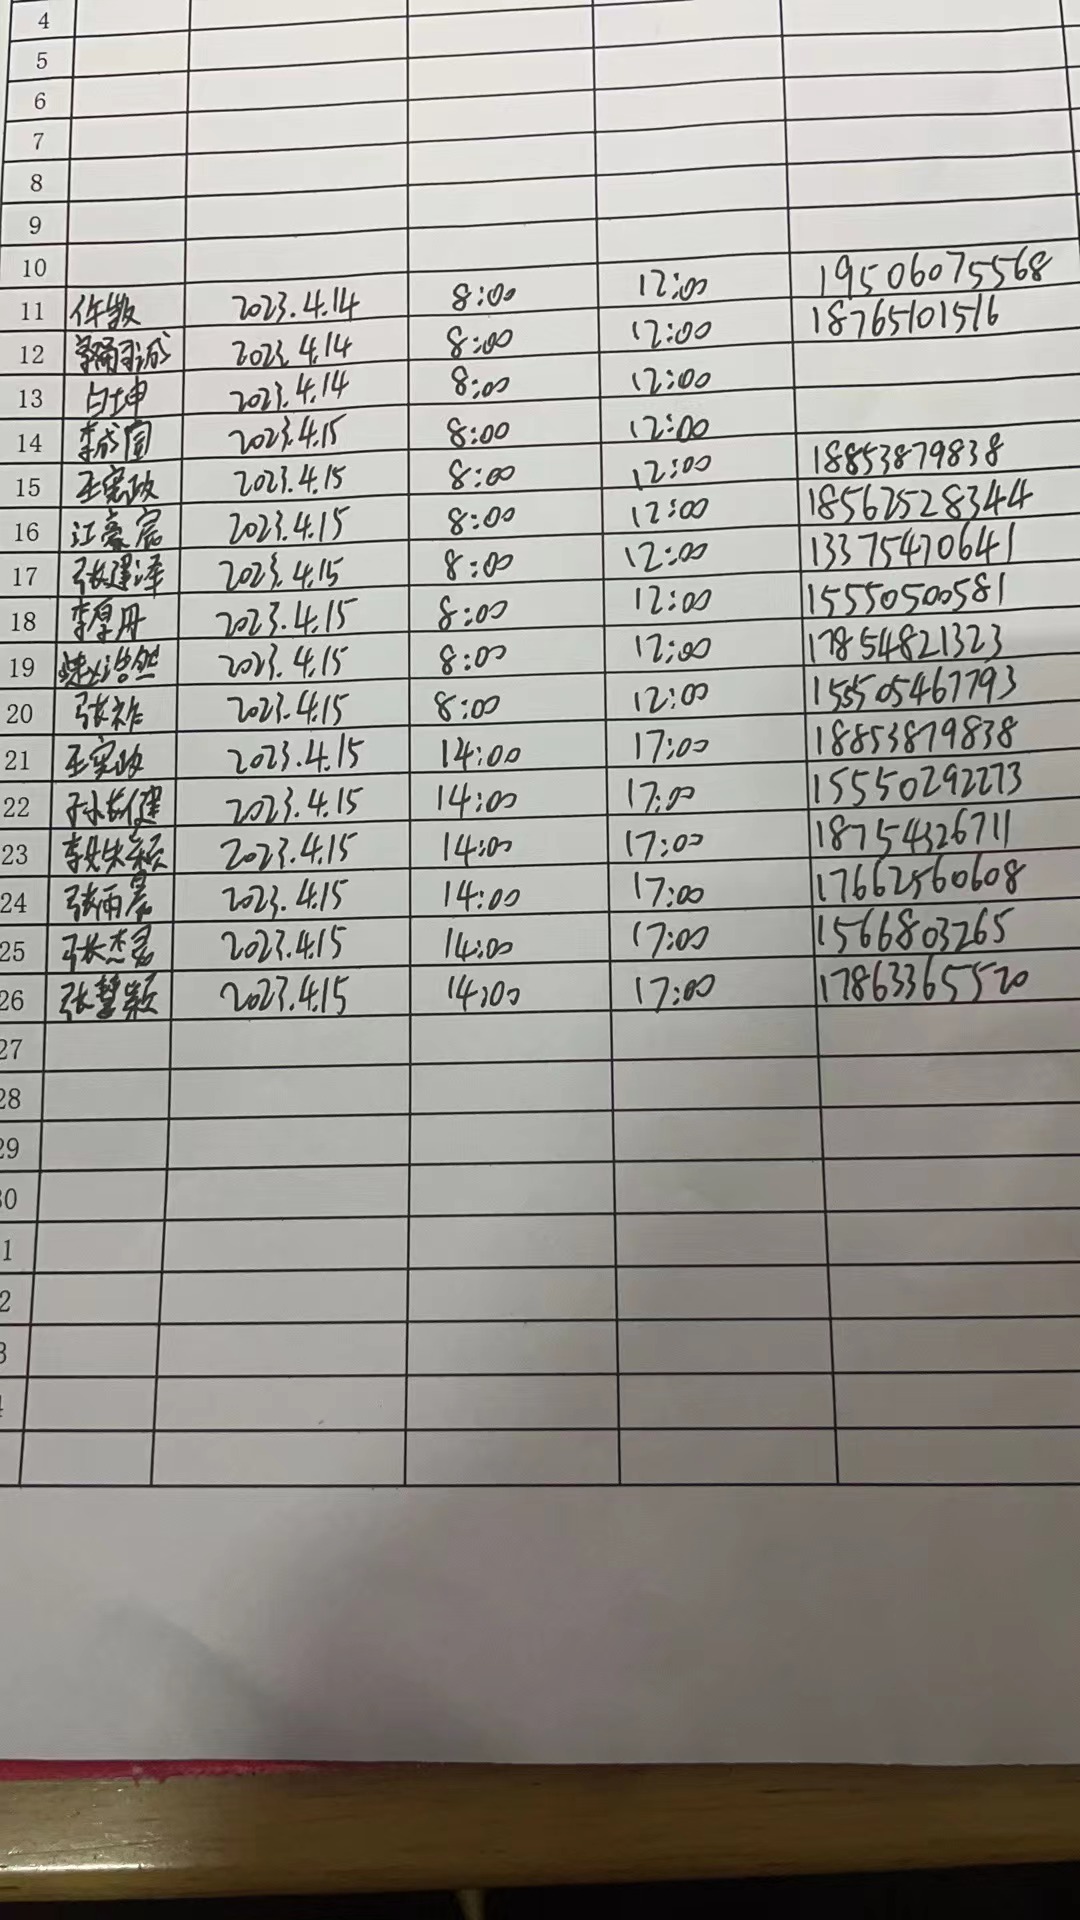 4
5
6
7
8
9
10
11 2023.4.14 8:00 12:00 19506075568
12 2023.4.14 8:00 12:00 18765101516
13 白坤 2023.4.14 8:00 12:00
14 李成国 2023.4.15 8:00 12:00
15 王宪政 2023.4.15 8:00 12:00 18853879838
16 江豪宸 2023.4.15 8:00 12:00 18562528344
17 张建泽 2023.4.15 8:00 12:00 13375470641
18 李厚丹 2023.4.15 8:00 12:00 15550500581
19 2023.4.15 8:00 12:00 17854821323
20 张祚 2023.4.15 8:00 12:00 15505467793
21 王宪政 2023.4.15 14:00 17:00 18853879838
22 孙长健 2023.4.15 14:00 17:00 15550292273
23 2023.4.15 14:00 17:00 18754326711
24 张雨晨 2023.4.15 14:00 17:00 17662560608
25 2023.4.15 14:00 17:00 1566803265
26 张慧颖 2023.4.15 14:00 17:00 17863365520
27
28
29
30
1
2
3
4